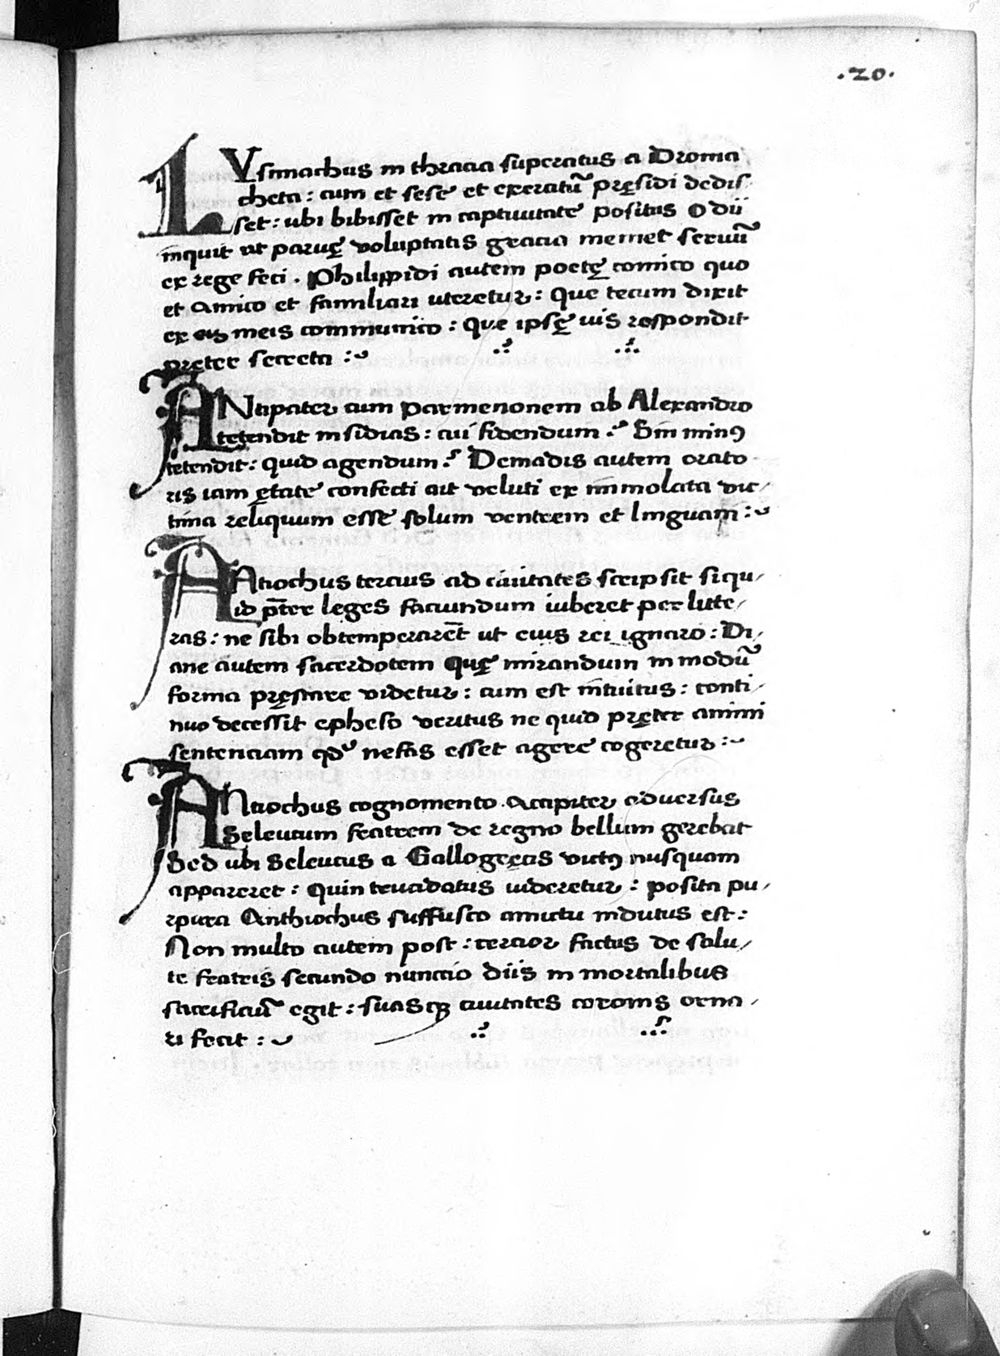 .20.
LVsimachus in thracia superatus a Droma
cheta: cum et sese et exercitũ pręsidi dedis
set: ubi bibisset in captiuitate positus O dii
inquit ut paruę voluptatis gracia memet seruũ
ex rege feci. Philippidi autem poetę comico quo
et Amico et familiari uteretur: Que tecum dixit
ex eis meis communico: Que ipsę uis respondit
pręter secreta :~
ANtipater cum parmenonem ab Alexandro
tetendit insidias: cui fidendum.? Sin minꝯ
tetendit: quid agendum.? Demadis autem orato
ris iam ętate confecti ait veluti ex immolata vic/
tima reliquum esse solum ventrem et linguam :~
ANtiochus tercius ad ciuitates scripsit siqu/
id p̄ter leges faciundum iuberet per litte/
ras: ne sibi obtemperarēt ut eius rei ignaro: Di/
ane autem sacerdotem Quę mirandum in modũ
forma pręstare videtur: cum est intuitus: conti/
nuo decessit epheso veritus ne quid pręter animi
sentenciam qd̛ nefas esset agere cogeretur :~
ANtiochus cognomento Accipiter aduersus
Seleucum fratrem de regno bellum gerebat
Sed ubi Seleucus a Gallogręcis victꝯ nusquam
appareret: Quin trucidatus uideretur: posita pu/
rpura Anthiochus suffusco amictu indutus est:
Non multo autem post: cercior factus de salu/
te fratris secundo nuncio diis in mortalibus
sacrificiũ egit: suasqꝫ ciuitates coronis orna/
ri fecit :~